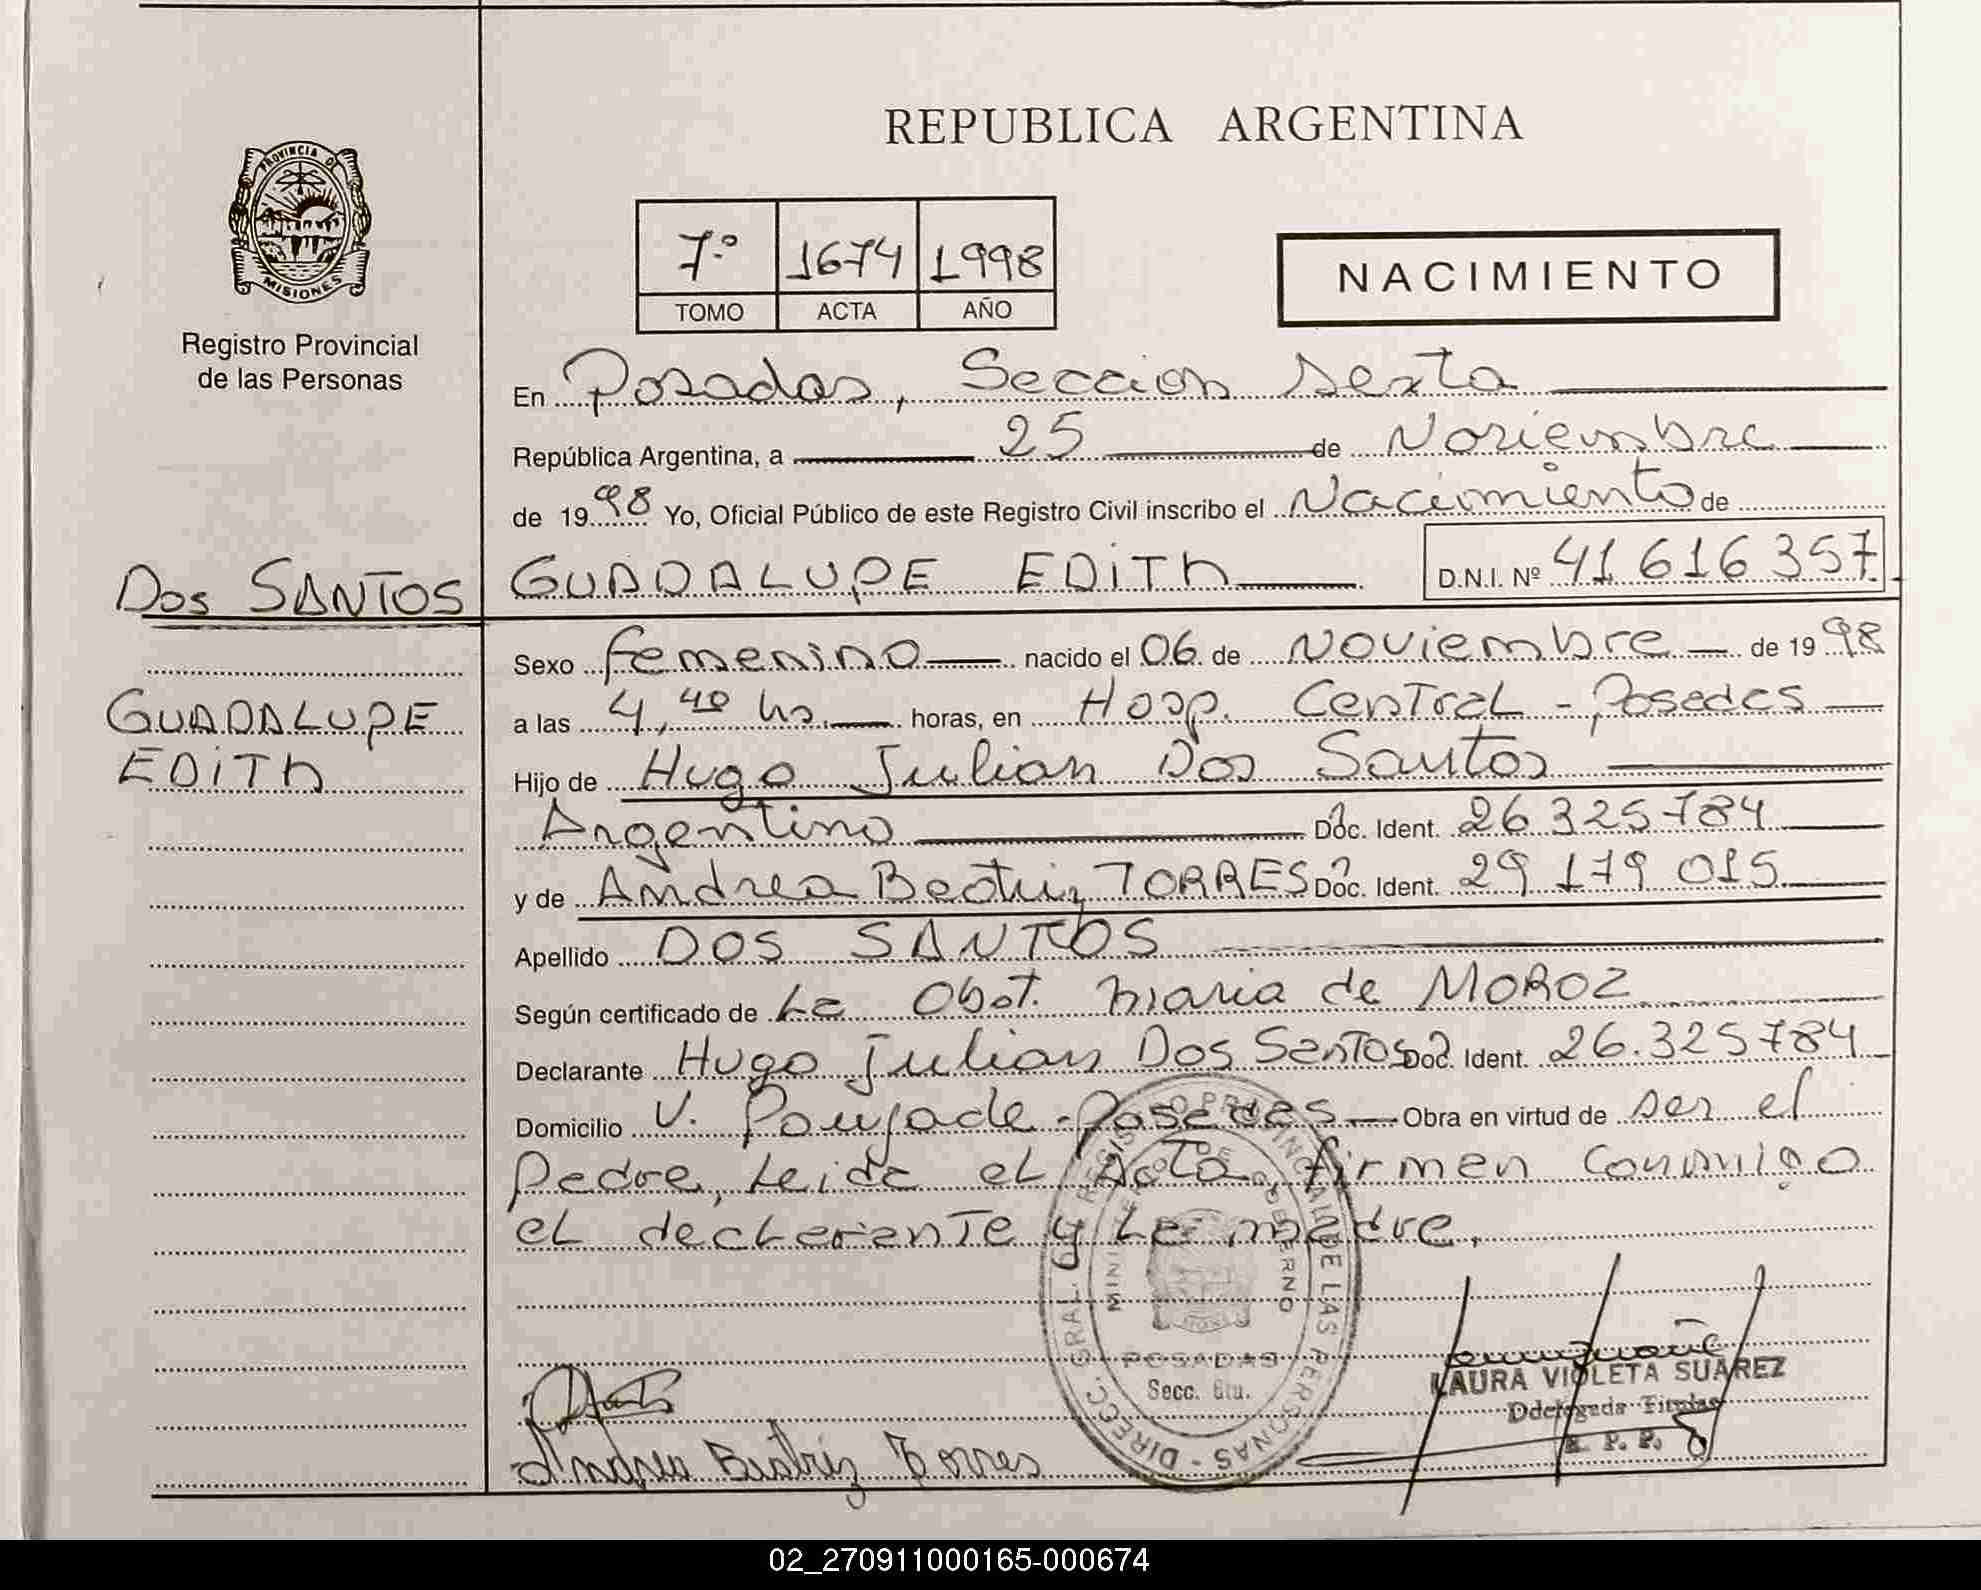 REPUBLICA ARGENTINA
PROVINCIA DE
MISIONES
Registro Provincial
de las Personas
7º 1674 1998
TOMO ACTA AÑO
NACIMIENTO
En Posadas, Seccion Sexta
República Argentina, a 25 de Noviembre
de 1998 Yo, Oficial Público de este Registro Civil inscribo el Nacimiento de
DOS SANTOS
GUADALUPE EDITH D.N.I. Nº 41 616 357
GUADALUPE
EDITH
Sexo femenino nacido el 06 de Noviembre de 1998
a las 4,40 hs. horas, en Hosp. Central - Posadas
Hijo de Hugo Julian Dos Santos
Argentino Doc. Ident. 26 325 784
y de Andrea Beatriz TORRES Doc. Ident. 29 179 015
Apellido DOS SANTOS
Según certificado de La Obst. Maria de MOROZ
Declarante Hugo Julian Dos Santos Doc. Ident. 26.325784
Domicilio V. Poujade - Posadas Obra en virtud de ser el
Padre, Leida el Acta, firman conmigo
el declarante y La madre.
DIRECC. GRAL. DE REGISTRO PROVINCIAL DE LAS PERSONAS
MINISTERIO DE GOBIERNO
POSADAS
Secc. 6ta.
LAURA VIOLETA SUAREZ
Ddelegada Titular
R. P. P.
Andrea Beatriz Torres
02_270911000165-000674